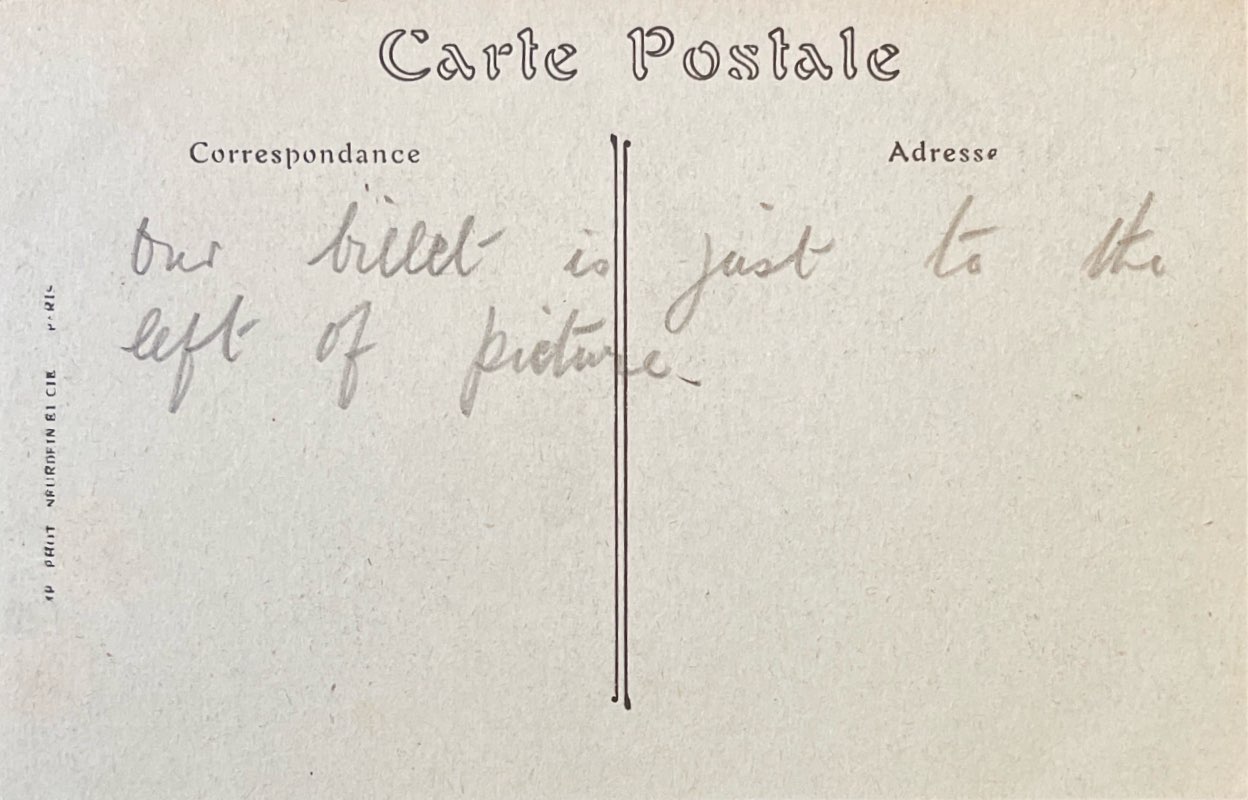 Carte Postale
Correspondance
Adresse
Our billet is just to the
left of picture.
PHOT NEURDEIN ET CIE PARIS